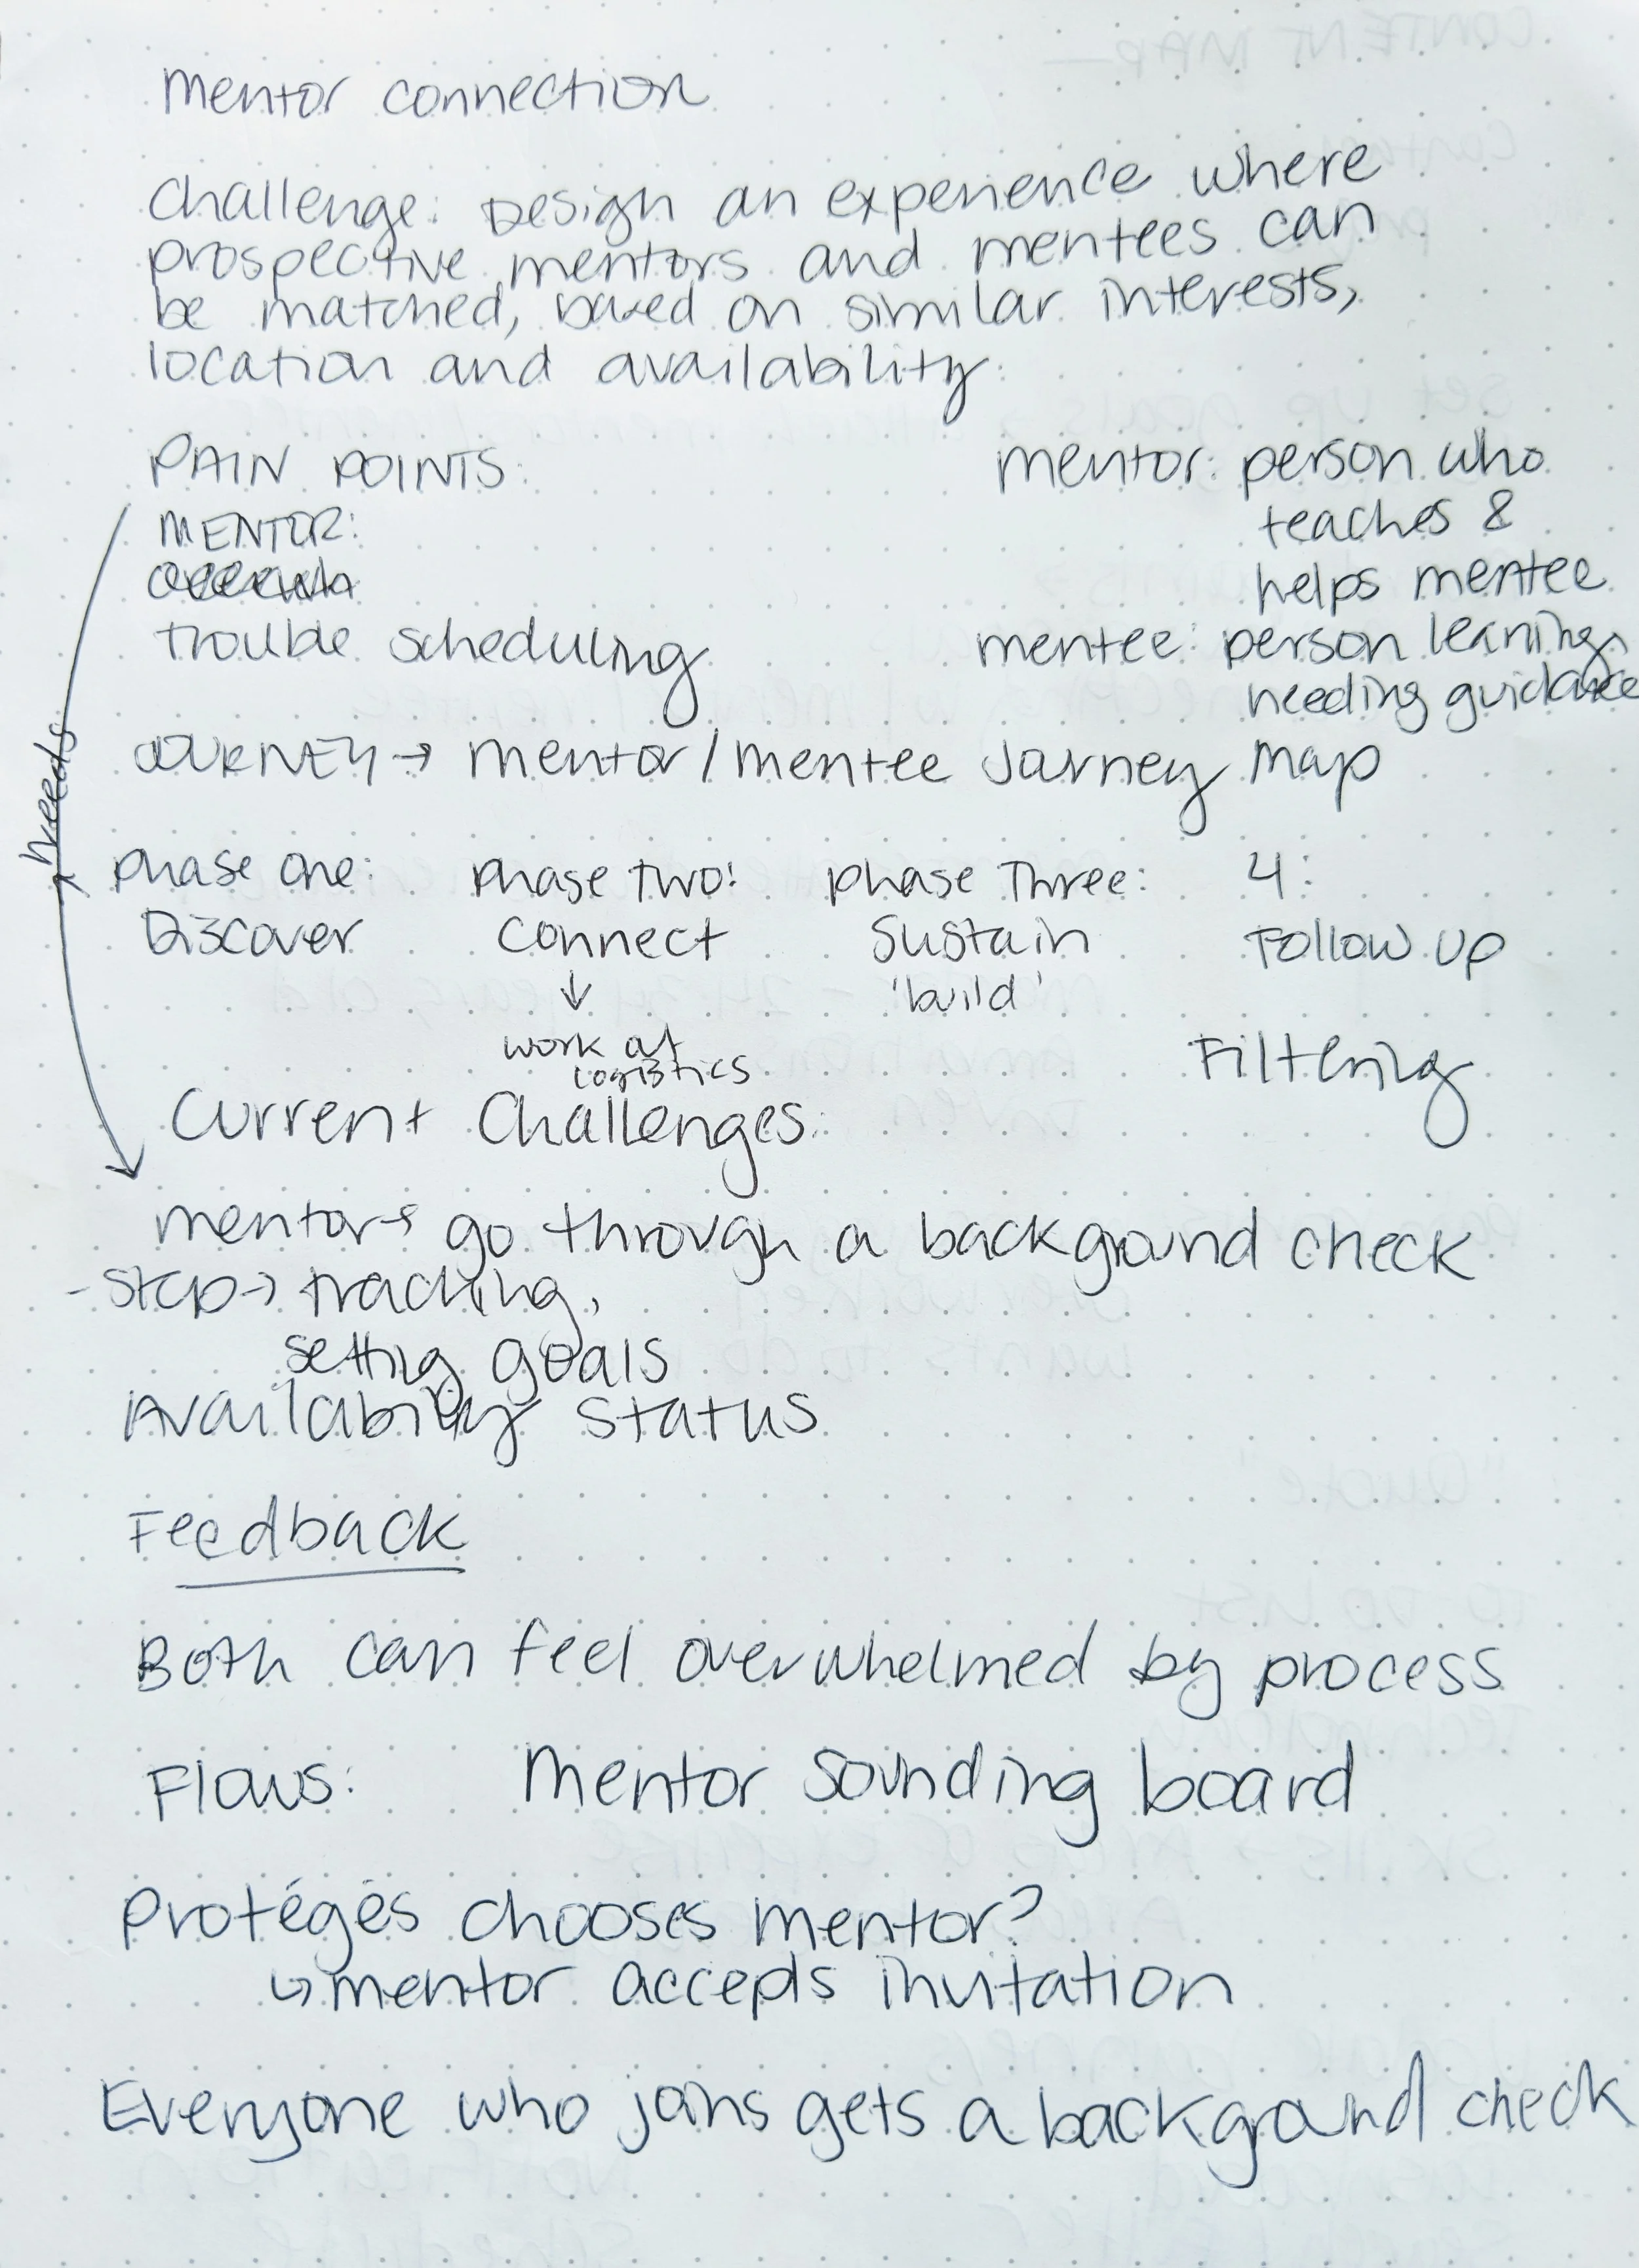 mentor connection
Challenge: Design an experience where
prospective mentors and mentees can
be matched, based on similar interests,
location and availability.
PAIN POINTS:
MENTOR:
trouble scheduling
mentor: person who
teaches &
helps mentee
mentee: person leaning,
needing guidance
needs
JOURNEY → mentor/mentee Journey map
phase one:
Discover
phase two:
connect
↓
work out
logistics
phase Three:
sustain
'build'
4:
Follow up
Filtering
Current Challenges:
mentors go through a background check
- step → tracking,
setting goals
Availability status
Feedback
Both can feel overwhelmed by process
Flows: mentor sounding board
Protégés chooses mentor?
↳ mentor accepts invitation
Everyone who joins gets a background check